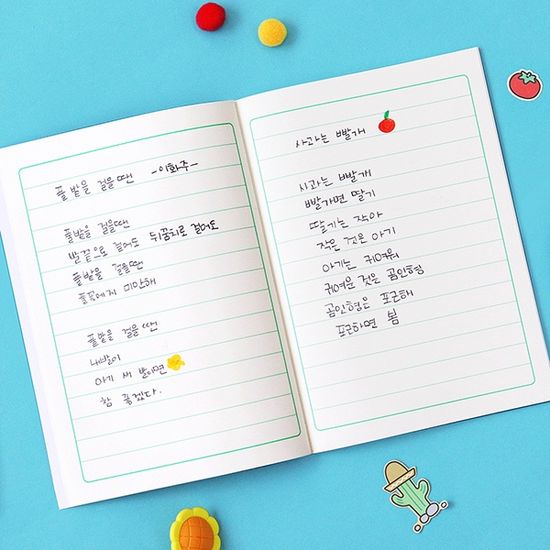 풀밭을 걸을땐 -이화주-
풀밭을 걸을땐
발끝으로 걸어도 뒤꿈치로 걸어도
풀밭을 걸을땐
풀꽃에게 미안해
풀밭을 걸을 땐
내발이
아기 새 발이면
참 좋겠다.
사과는 빨개
사과는 빨개
빨가면 딸기
딸기는 작아
작은 것은 아기
아기는 귀여워
귀여운 것은 곰인형
곰인형은 포근해
포근하면 봄